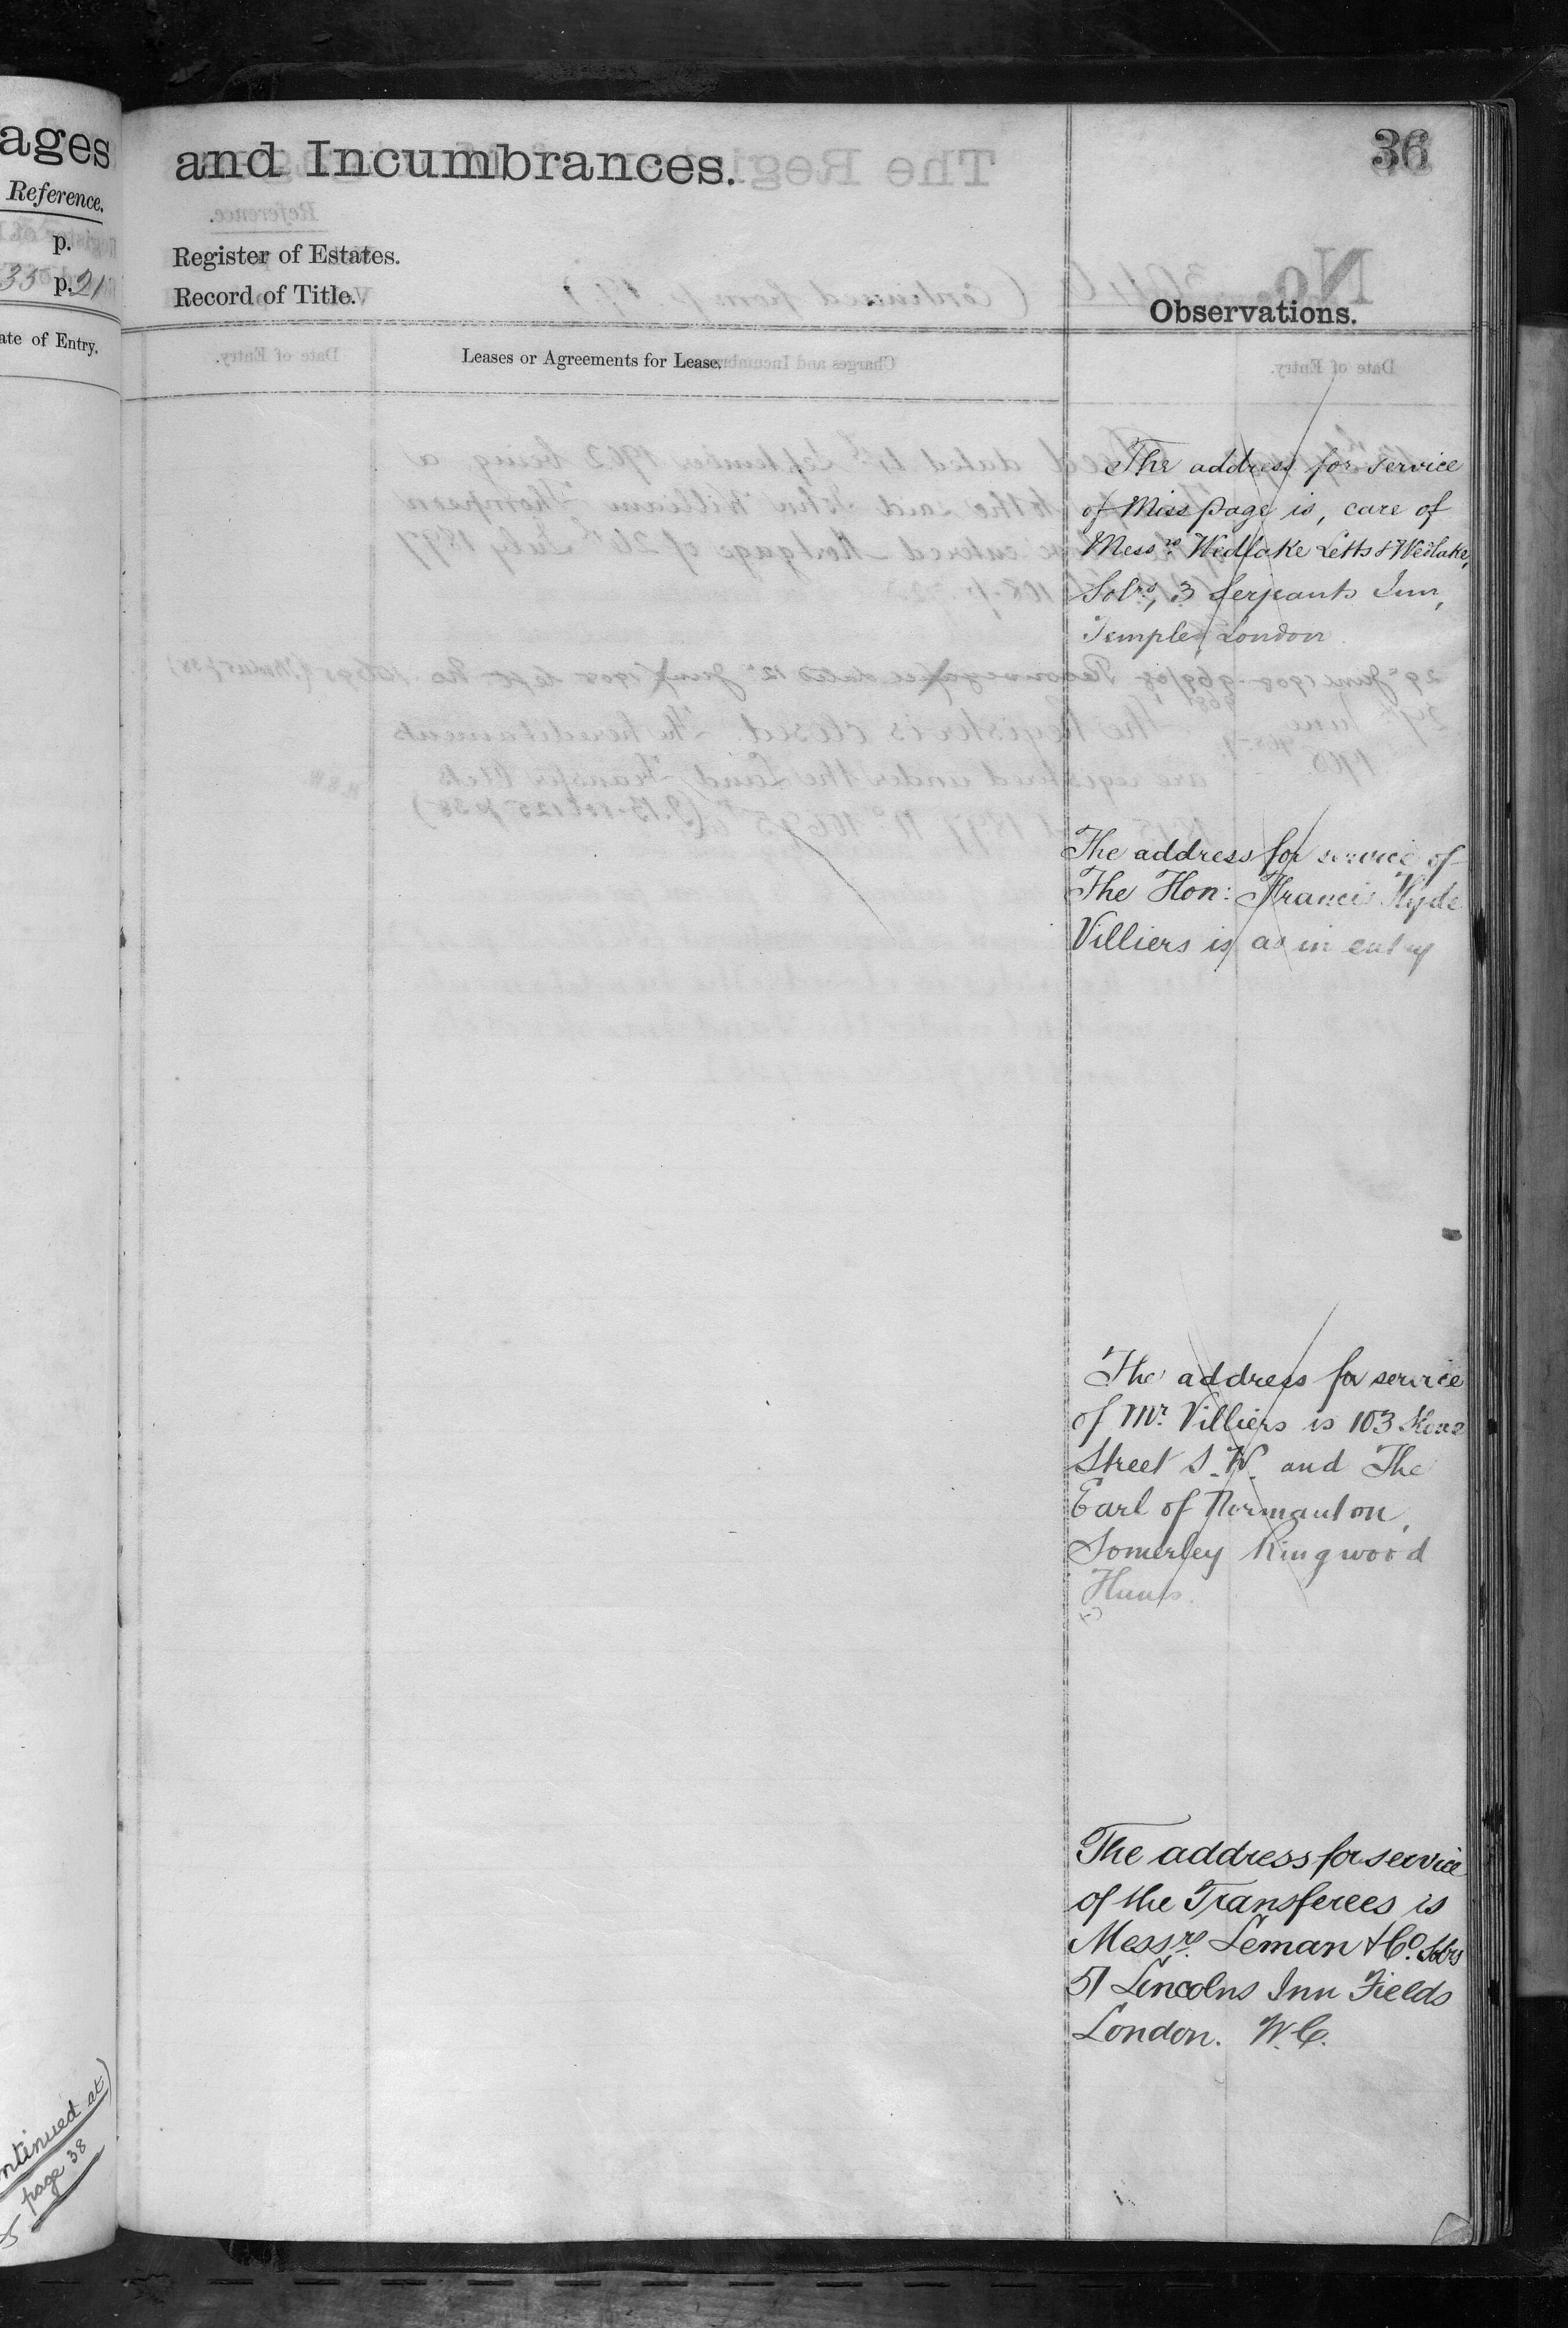 ages
Reference.
p.
35 p. 21
ate of Entry.
ntinued at)
page 38
and Incumbrances.
36
Register of Estates.
Record of Title.
Observations.
Leases or Agreements for Lease.
The address for service
of Miss Page is, care of
Messrs Wedlake Letts & Wedlake,
Solrs, 3 Serjeants Inn,
Temple, London.
The address for service of
The Hon: Francis Hyde
Villiers is as in entry
The address for service
of Mr. Villiers is 103 Sloane
Street S.W. and The
Earl of Normanton,
Somerley Ringwood
Hants.
The address for service
of the Transferees is
Messrs. Leman & Co. Solrs
51 Lincolns Inn Fields
London. W.C.